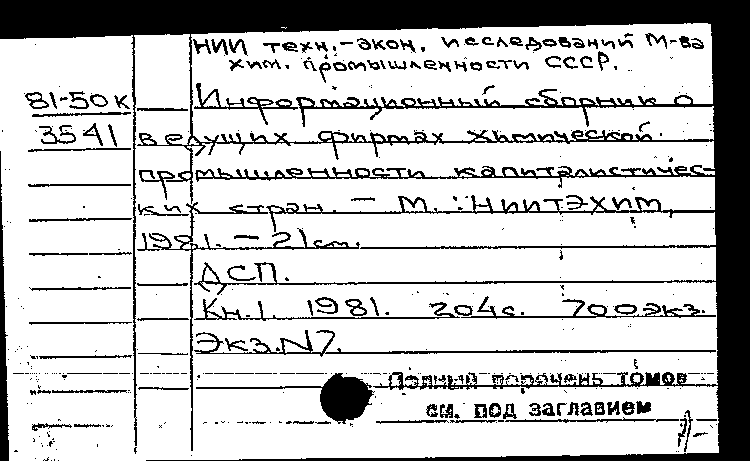 НИИ техн.-экон. исследований М-ва
хим. промышленности СССР.
81-50к Информационный сборник о
3541 ведущих фирмах химической
промышленности капиталистичес-
ких стран. — М.: НИИТЭХИМ,
1981. — 21 см.
ДСП.
Кн.1. 1981. 204с. 700экз.
Экз.N7.
Полный перечень томов
см. под заглавием